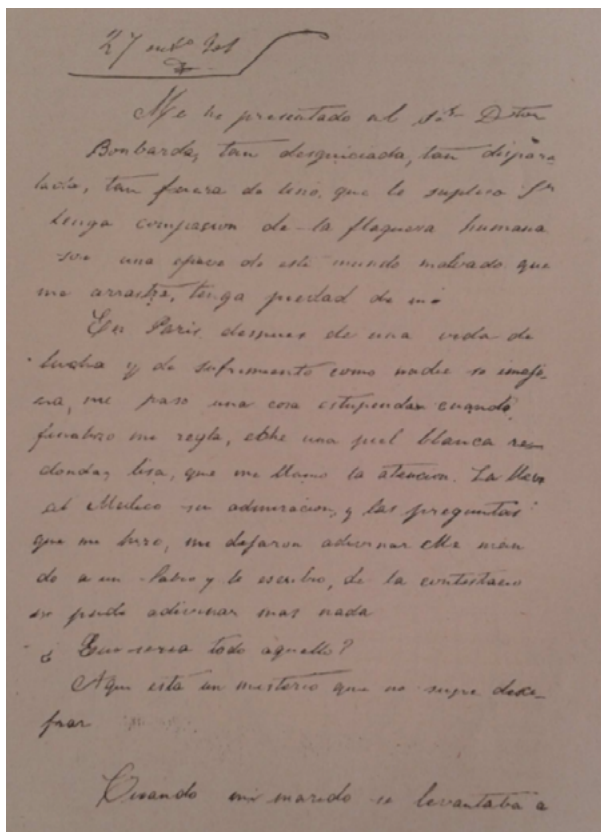 27
Me he presentado al Sr Dtor
Bonbarda, tan desquiciada, tan dispara
tada, tan fuera de tino, que le suplico Sr
tenga compasion de la flaquesa humana
soy una epave de este mundo malvado que
me arrastra, tenga piedad de mi
En Paris despues de una vida de
lucha y de sufrimiento como nadie se imaji
na, me paso una cosa estupenda cuando
finalizo mi regla, eche una piel blanca re
donda, lisa, que me llamo la atencion. La lleve
al Medico su admiracion, y las preguntas
que me hizo, me dejaron adivinar Me man
do a un y le escribo, de la contestacio
no pude adivinar mas nada
¿ Que seria todo aquello?
Aqui está un misterio que no supe desci
frar
Cuando mi marido se levantaba a